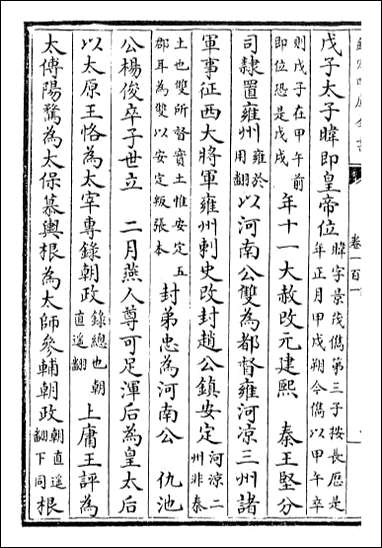 卷一百一
戊子太子暐即皇帝位暐字景茂儁第三子按長厯是年正月甲戌朔今儁以甲午卒
則戊子在甲午前即位恐是戊戌年十一大赦改元建熙　秦王堅分
司隸置雍州雍於用翻以河南公雙為都督雍河涼三州諸
軍事征西大將軍雍州刺史改封趙公鎮安定河涼二州非秦
土也雙所督實土惟安定五郡耳為雙以安定叛張本封弟忠為河南公　仇池
公楊俊卒子世立　二月燕人尊可足渾后為皇太后
以太原王恪為太宰專錄朝政錄總也朝直遥翻上庸王評為
太傅陽騖為太保慕輿根為太師參輔朝政朝直遥翻下同根